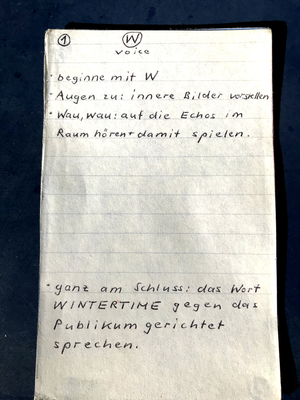 ① Ⓦ
voice
· beginne mit W
· Augen zu: innere Bilder vorstellen
· Wau, wau: auf die Echos im
Raum hören + damit spielen.
· ganz am Schluss: das Wort
WINTERTIME gegen das
Publikum gerichtet
sprechen.